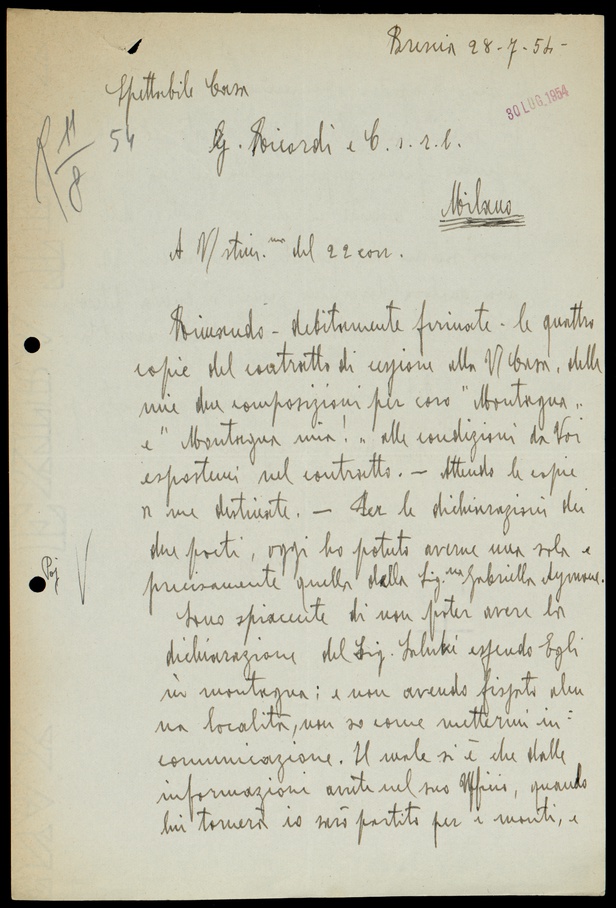 Brescia 28-7-54-
Spettabile Casa
30 LUG. 1954
R 11/8 54
G. Ricordi e C. s. r. l.
Milano
A V/ stim.ma del 22 corr.
Rimando - debitamente firmate - le quattro
copie del contratto di cessione alla V/ Casa, delle
mie due composizioni per coro "Montagna"
e "Montagna mia!" alle condizioni da Voi
espostemi nel contratto. - Attendo le copie
a me destinate. - Per le dichiarazioni dei
due poeti, oggi ho potuto averne una sola e
precisamente quella della Sig.na Gabriella Aymone.
Sono spiacente di non poter avere la
dichiarazione del Sig. essendo Egli
in montagna; e non avendo fissato alcu
na località, non so come mettermi in=
comunicazione. Il male si è che dalle
informazioni avute nel suo Ufficio, quando
lui tornerà io sarò partito per i monti, e